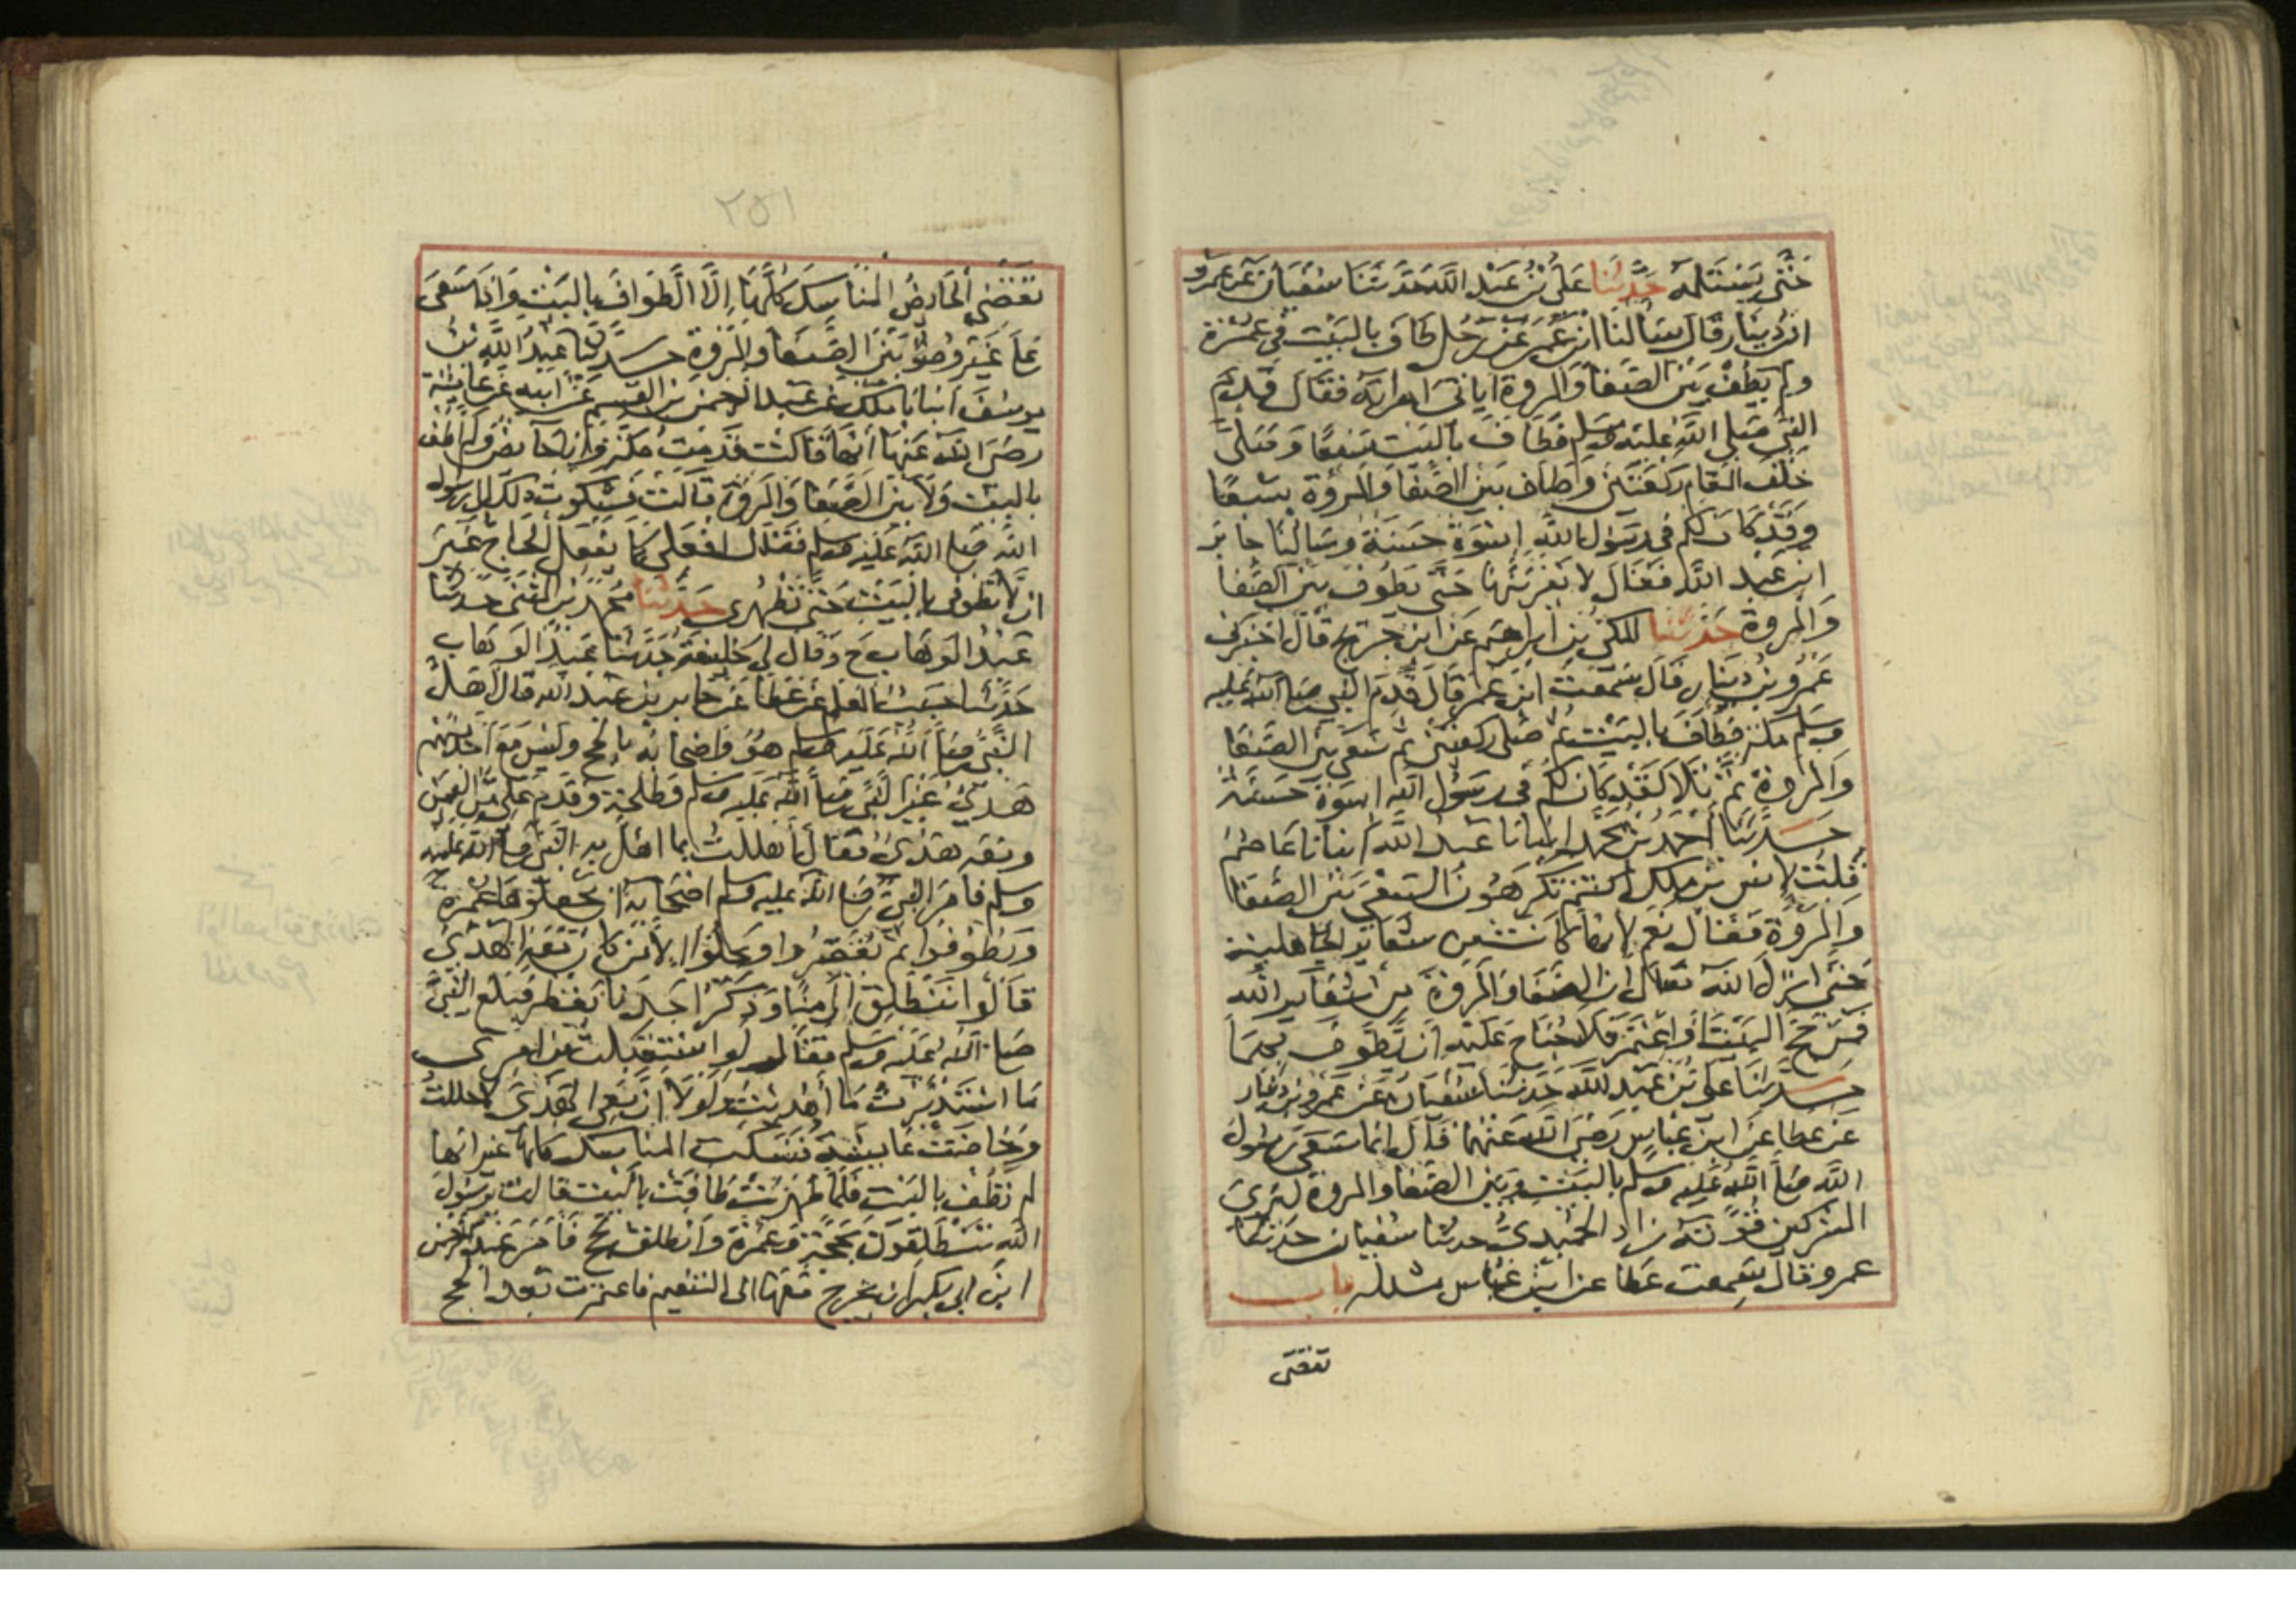 حَتَّى يَسْتَلِمَهُ حَدَّثَنَا عَلِيُّ بْنُ عَبْدِ اللَّهِ حَدَّثَنَا سُفْيَانُ عَنْ عَمْرِو
ابْنِ دِينَارٍ قَالَ سَأَلْنَا ابْنَ عُمَرَ عَنْ رَجُلٍ طَافَ بِالبَيْتِ فِي عُمْرَةٍ
ولم يَطُفْ بَيْنَ الصَّفَا وَالمروة ايأتى امراته فَقَالَ قَدِمَ
النَّبِيُّ صَلَّى اللَّهُ عَلَيْهِ وَسَلَّم فَطَافَ بالبَيْتِ سَبْعًا وَصَلَّى
خَلْفَ المَقَامِ رَكْعَتَيْنِ وَطَافَ بَيْنَ الصَّفَا وَالمروة سَبْعًا
وَقَدْ كَانَ لكم في رَسُولِ اللَّهِ اسْوَةٌ حَسَنَةٌ وسَألنَا جابر
ابن عَبدِ اللَّه فَقَالَ لا يَقْرَبَنَّهَا حَتَّى يَطُوفَ بَيْنَ الصَّفَا
وَالمروة حَدَّثَنَا المكى بن ابراهيم عَن ابن جريج قَالَ اخبرني
عَمْرُو بْنُ دِينَارٍ قَالَ سَمِعْتُ ابْنَ عُمَرَ قَالَ قَدِمَ النبي صَلى الله عَليه
وسلم مكة فَطَافَ بالبَيْتِ ثم صَلى ركعتين ثم سَعَى بَيْنَ الصَّفَا
وَالمَرْوة ثُمَّ تَلَا لَقَدْ كَانَ لكُمْ في رَسُولِ اللَّهِ اسوَة حَسَنَة
حَدَّثَنَا أَحْمَدُ بْنُ مُحَمَّد انبَانا عَبدُ اللَّه انبَانا عَاصِم
قُلْتُ لانس بن مَالِكٍ اكنتم تكرهُونَ السَّعْيَ بَيْنَ الصَّفَا
وَالمَرْوَة فَقَالَ نعَم لانهَا كَانَتْ من شعَاير الجَاهلية
حَتَّى انزلَ اللَّه تَعَالى ان الصَّفَا وَالمَرْوَةَ من شَعَايِرِ اللَّه
فَمَنْ حَجَّ البَيْتَ أَو اعْتَمَرَ فَلَا جُنَاحَ عَلَيْهِ ان يَطَّوَّفَ بهِمَا
حَدَّثَنَا عَلى بْنُ عَبْدِ اللَّهِ حَدَّثَنَا سُفْيَانُ عَنْ عَمْرِو بن دينَار
عَن عطا عَن ابنِ عَبَّاسٍ رَضِيَ اللَّهُ عَنْهُمَا قَالَ إِنَّمَا سَعَى رَسُولُ
اللَّه صَلى اللَّهُ عَلَيْهِ وسلم بالبَيْتِ وبَيْن الصَّفَا والمروة لِيُرِيَ
المشركين قُوَّتَهُ زاد الحُمَيْدِيُّ حدثنا سُفيان حَدثنا
عمرو قَالَ سَمِعت عَطا عن ابن عَبَّاس مثله باب
تقضى
٢٥١
تَقْضِي الحَايِضُ المنَاسِكَ كُلَّهَا إِلَّا الطَّوَافَ بِالبَيْتِ وَإِذَا سَعَى
عَلَى غَيْرِ وُضُوٍ بَيْنَ الصَّفَا وَالْمَرْوَةِ حدثنَا عَبدُ اللَّهِ بْنُ
يوسُفَ انبَانا مَالك عَن عَبدِ الرحمن بن القسم عَن ابيه عَن عَائِشَة
رَضي اللَّه عَنها أَنهَا قَالَت قَدِمْتُ مَكة وَانا حَايض وَلَم اطُف
بالبيت وَلا بين الصَّفَا وَالمَرْوَة قَالَت فَشَكوت ذلك الى رسُول
اللَّه صَلى اللَّه عَليه وسلم فقَال افعَلى كَما يَفعَل الحَاج غَيْرَ
ان لا تَطُوفى بالبَيْتِ حَتى تَطْهُرِى حَدَّثَنَا مُحَمَّد بن المثَنى حدثنا
عَبْدُ الوَهاب ح وَقَالَ لِي خَليفَة حَدَّثَنَا عَبْدُ الوَهَّاب
حَدَّثَنَا حَبيب المعَلم عَنْ عَطا عَن جابر بن عَبد الله قال اهَلَّ
النَّبِيُّ صَلى اللَّهُ عَلَيْهِ وسلم هُوَ وَاصْحَابُهُ بالحج ولَيْسَ مَعَ أَحَدٍ منهم
هَدْيٌ غَيْرَ النَّبي صَلى اللَّه عَلَيه وسلم وطلحة وقَدِمَ عَلي من اليمن
ومَعَه هَدْيٌ فقَال اهللت بما اهَل به النَّبي صَلى اللَّه عليه
وسلم فامَرَ النبي صَلى اللَّه عليه وسلم اصْحَابه ان يجعَلوها عُمرة
ويَطُوفوا ثم يُقَصِّرُوا ويحلوا الا مَنْ كَانَ مَعَه الهَدْيُ
قَالُوا نَنْطَلِقُ إلَى مِنًا وَذَكَرُ احَدِنَا يقطر فبَلَغ النَّبِيَّ
صَلى اللَّهُ عَلَيْه وسلم فقَال لو اسْتَقْبَلْتُ مِن امري
مَا اسْتَدْبَرْتُ مَا أَهْدَيْتُ وَلَوْلَا انَّ مَعِي الهَدْيَ لاحللتُ
وَحَاضَتْ عَايِشَة فَنَسَكتِ المناسك كلها غير انها
لم تَطُف بالبيت فَلما طهرت طَافت بالبَيت قالت يرسول
اللَّه تَنْطَلِقُونَ بحَجَّةٍ وَعُمْرَةٍ وَانطلق بحج فَأَمَرَ عَبد الرحمن
ابن ابى بكر ان يَخرج مَعَهَا الى التنعيم فاعتمرت بَعد الحج